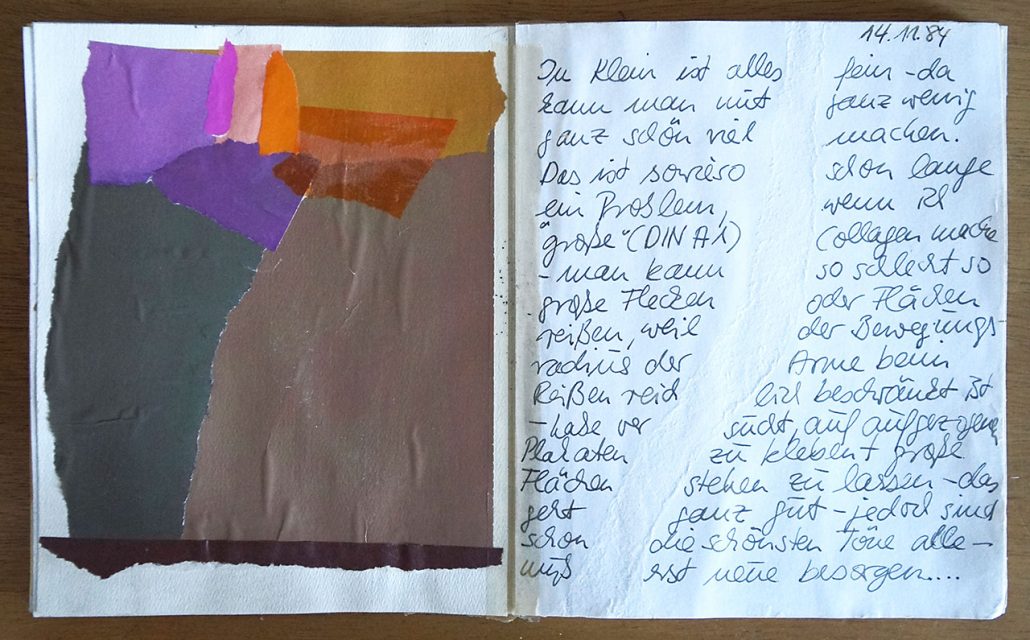 14.11.84
In Klein ist alles fein - da
kann man mit ganz wenig
ganz schön viel machen.
Das ist sowieso schon lange
ein Problem, wenn ich
"große" (DIN A1) Collagen mache
- man kann so schlecht so
große Flecken oder Flächen
reißen, weil der Bewegungs-
radius der Arme beim
Reißen reich lich beschränkt ist
- habe ver sucht, auf aufgezogenen
Plakaten zu kleben + große
Flächen stehen zu lassen - das
geht ganz gut - jedoch sind
schon die schönsten Töne alle -
muß erst neue besorgen....